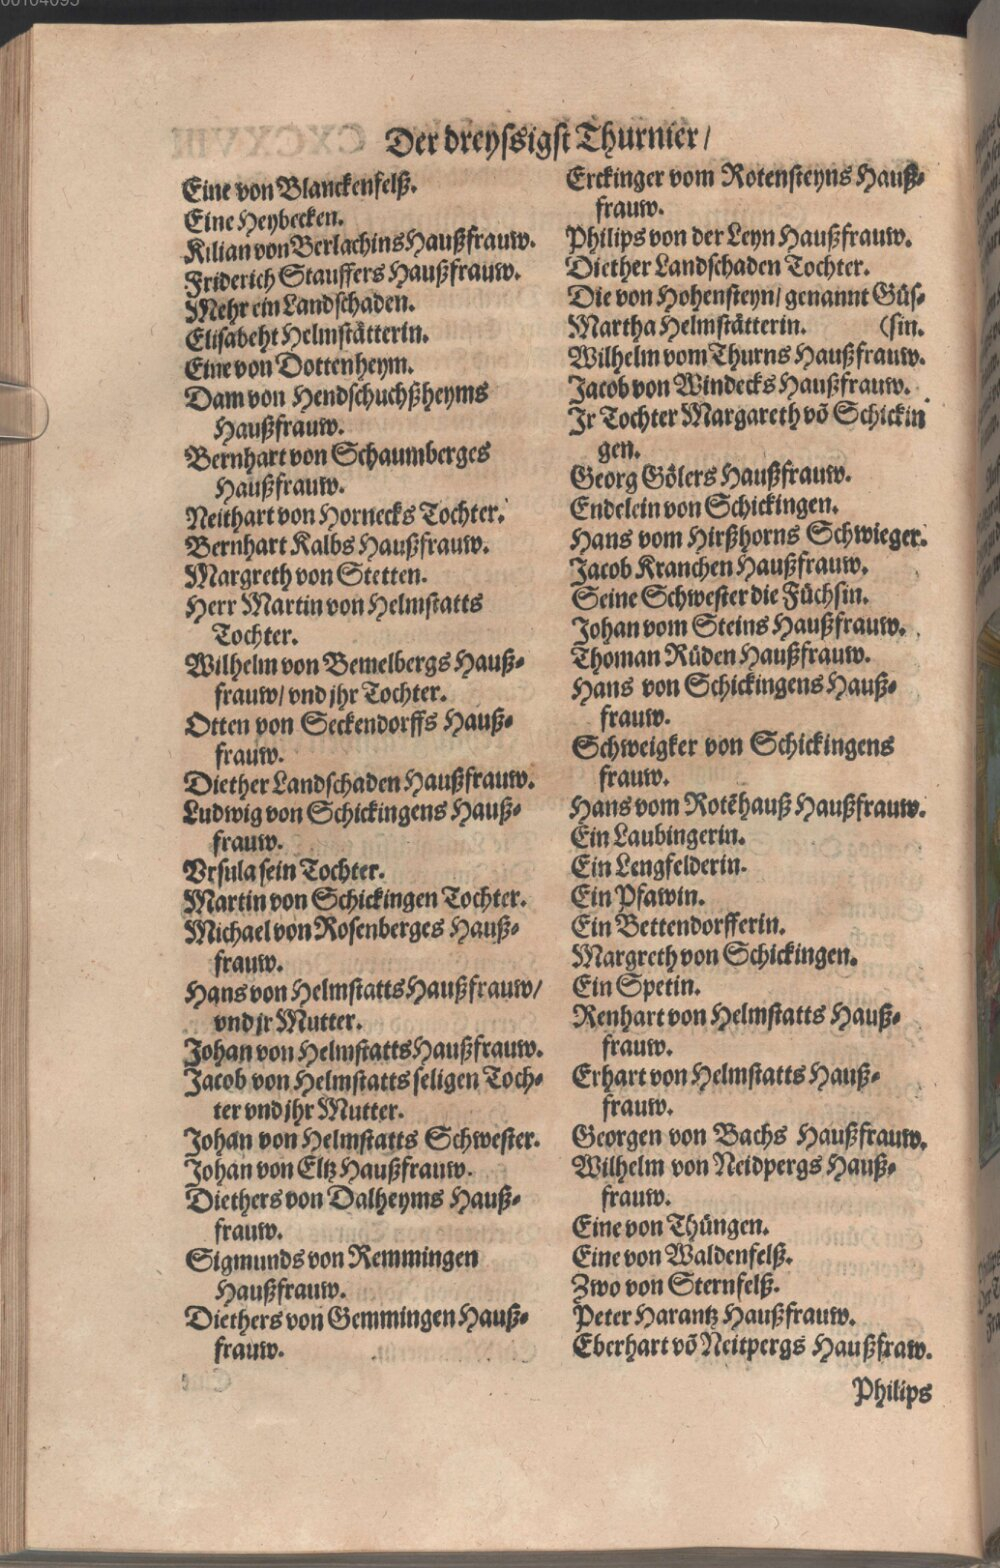 Der dreyssigst Thurnier/
Eine von Blanckenfelß.
Eine Heybecken.
Kilian von Berlachins Haußfrauw.
Friderich Stauffers Haußfrauw.
Mehr ein Landschaden.
Elisabeht Helmstätterin.
Eine von Dottenheym.
Dam von Hendschuchßheyms
Haußfrauw.
Bernhart von Schaumberges
Haußfrauw.
Neithart von Hornecks Tochter.
Bernhart Kalbs Haußfrauw.
Margreth von Stetten.
Herr Martin von Helmstatts
Tochter.
Wilhelm von Bemelbergs Hauß-
frauw/ vnd jhr Tochter.
Otten von Seckendorffs Hauß-
frauw.
Diether Landschaden Haußfrauw.
Ludwig von Schickingens Hauß-
frauw.
Vrsula sein Tochter.
Martin von Schickingen Tochter.
Michael von Rosenberges Hauß-
frauw.
Hans von Helmstatts Haußfrauw/
vnd jr Mutter.
Johan von Helmstatts Haußfrauw.
Jacob von Helmstatts seligen Toch-
ter vnd jhr Mutter.
Johan von Helmstatts Schwester.
Johan von Eltz Haußfrauw.
Diethers von Dalheyms Hauß-
frauw.
Sigmunds von Remmingen
Haußfrauw.
Diethers von Gemmingen Hauß-
frauw.
Erckinger vom Rotensteyns Hauß-
frauw.
Philips von der Leyn Haußfrauw.
Diether Landschaden Tochter.
Die von Hohensteyn/ genannt Güs-
Martha Helmstätterin. (sin.
Wilhelm vom Thurns Haußfrauw.
Jacob von Windecks Haußfrauw.
Jr Tochter Margareth võ Schickin
gen.
Georg Gölers Haußfrauw.
Endelein von Schickingen.
Hans vom Hirßhorns Schwieger.
Jacob Kranchen Haußfrauw.
Seine Schwester die Füchsin.
Johan vom Steins Haußfrauw.
Thoman Rüden Haußfrauw.
Hans von Schickingens Hauß-
frauw.
Schweigker von Schickingens
frauw.
Hans vom Rotẽhauß Haußfrauw.
Ein Laubingerin.
Ein Lengfelderin.
Ein Pfawin.
Ein Bettendorfferin.
Margreth von Schickingen.
Ein Spetin.
Renhart von Helmstatts Hauß-
frauw.
Erhart von Helmstatts Hauß-
frauw.
Georgen von Bachs Haußfrauw.
Wilhelm von Neidpergs Hauß-
frauw.
Eine von Thüngen.
Eine von Waldenfelß.
Zwo von Sternfelß.
Peter Harantz Haußfrauw.
Eberhart võ Neitpergs Haußfraw.
Philips